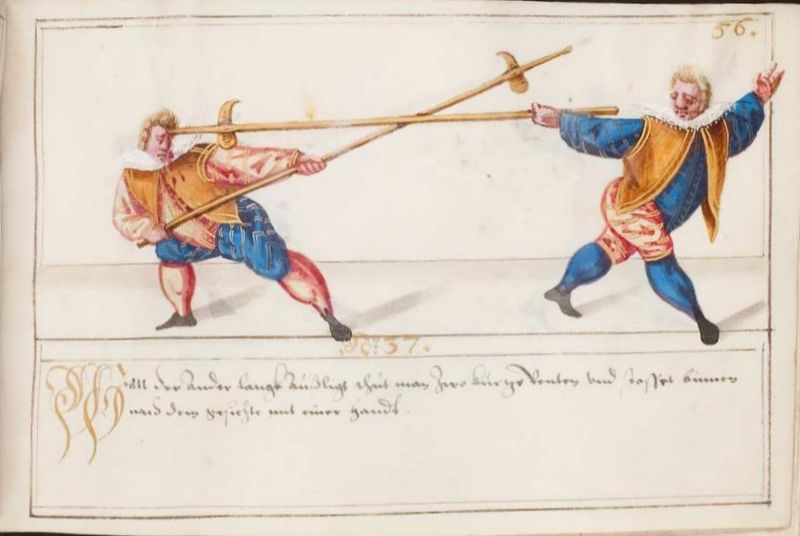 56.
No: 37.
Will der Ander lange Außligt thut man zwo kurtze Venten und stosset binnen
nach dem gesichte mit einer handt.